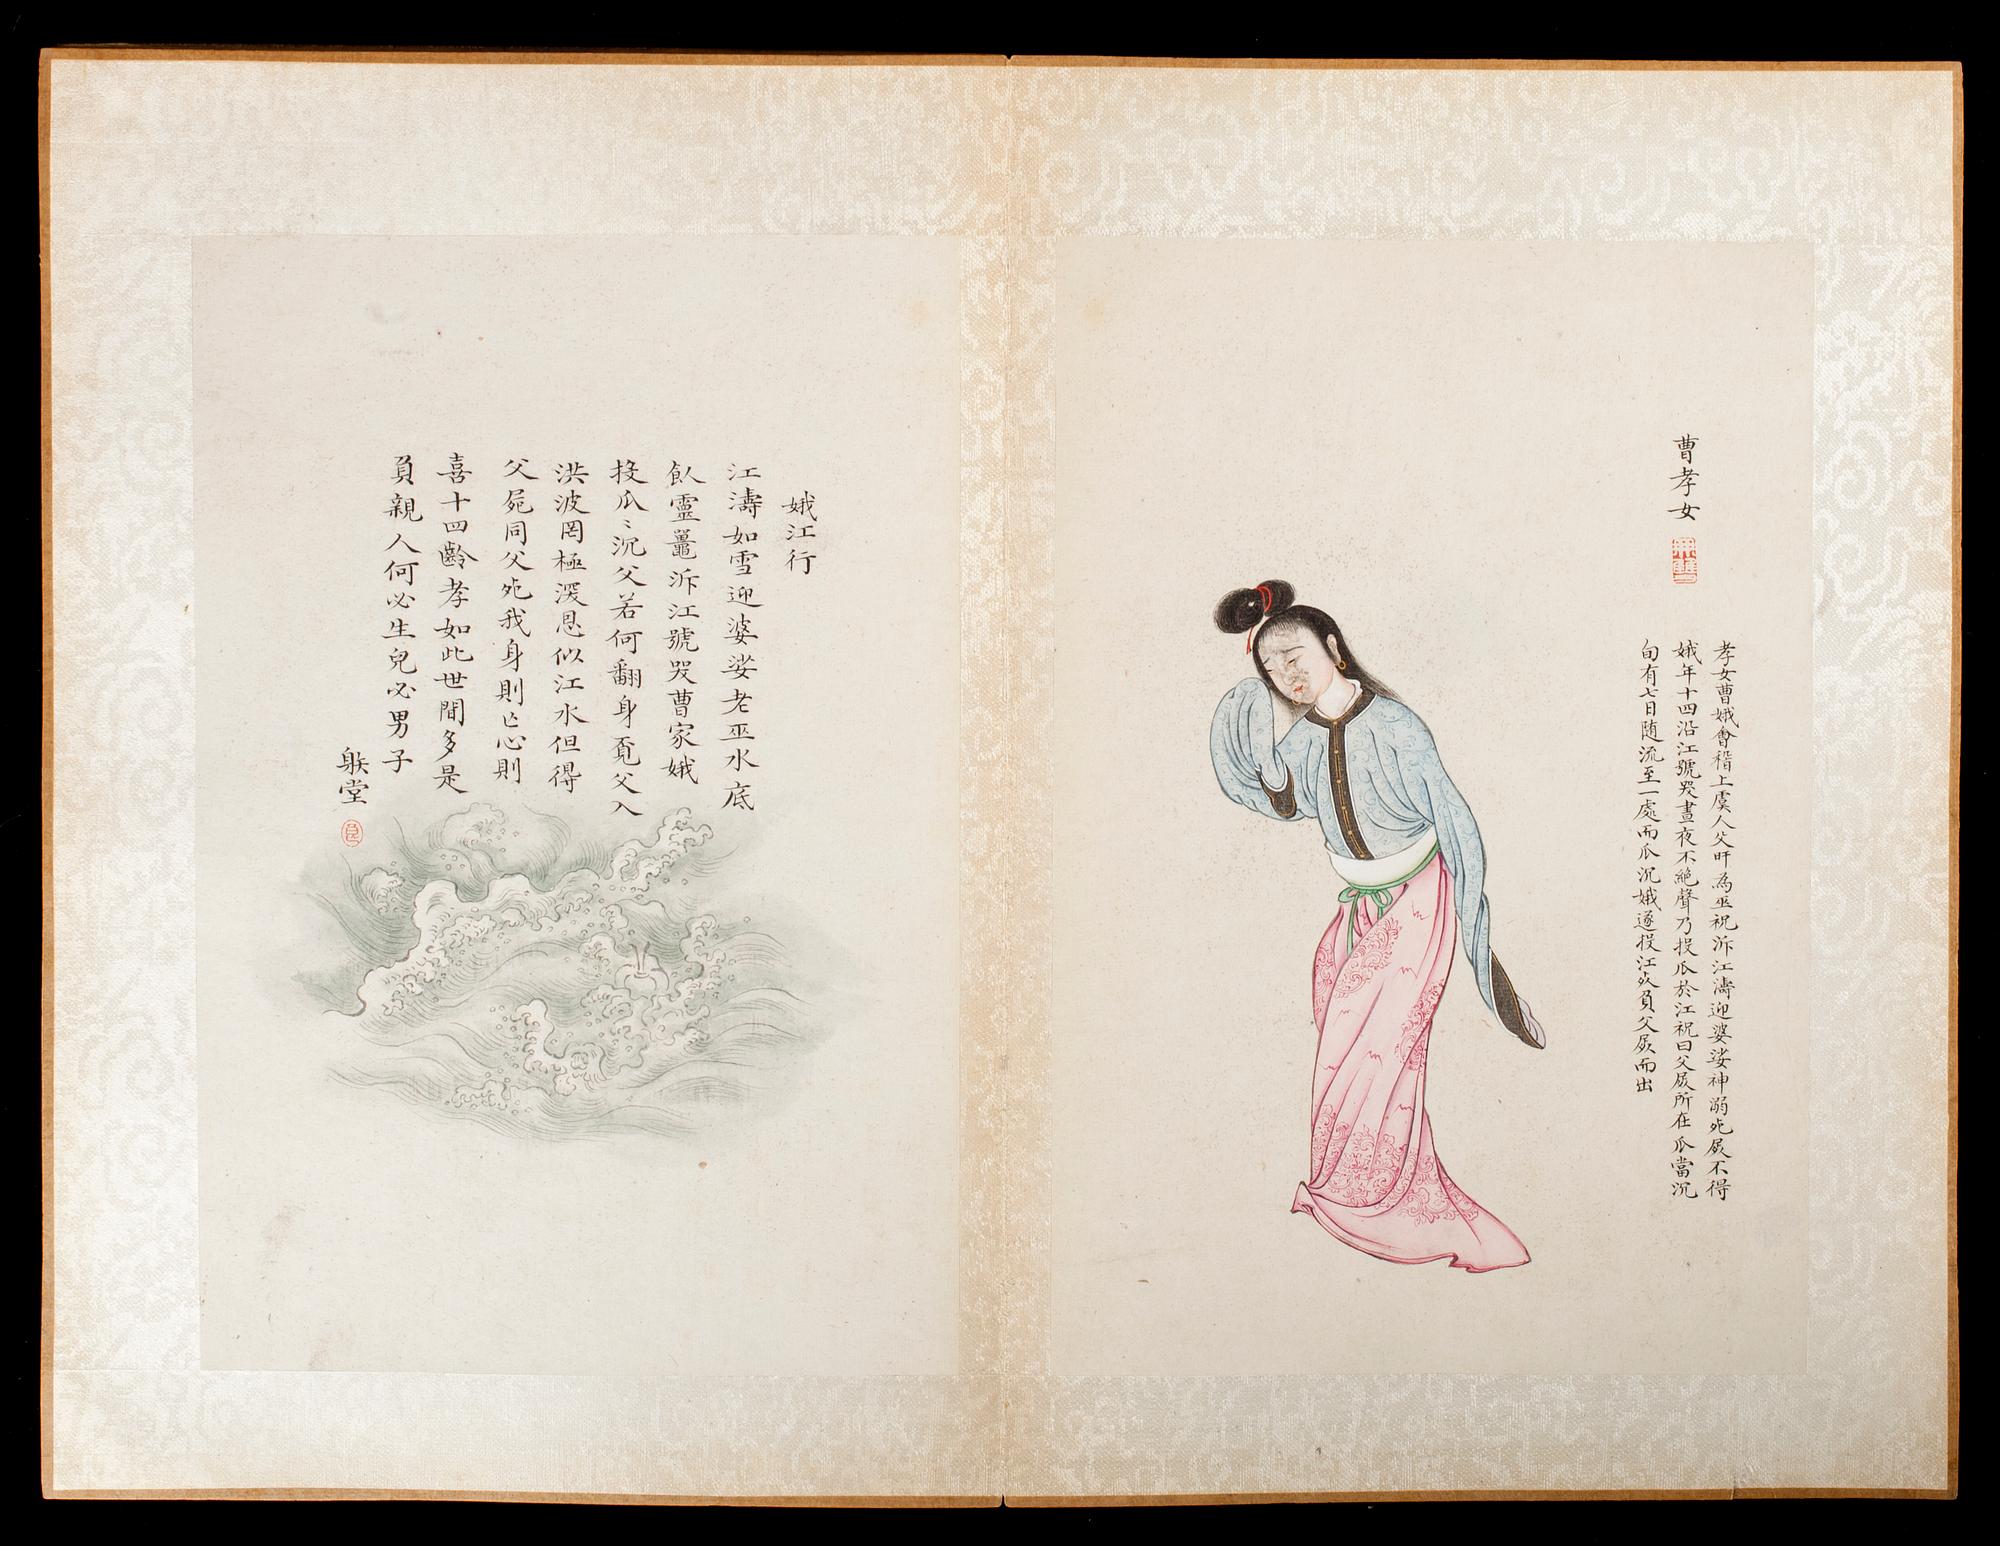 曹孝女
無雙
孝女曹娥會稽上虞人父旴為巫祝泝江濤迎婆娑神溺死屍不得
娥年十四沿江號哭晝夜不絕聲乃投瓜於江祝曰父屍所在瓜當沉
旬有七日随流至一處而瓜沉娥遂投江負父屍而出
娥江行
江濤如雪迎婆娑老巫水底
飲靈鼉泝江號哭曹家娥
投瓜〻沉父若何翻身覔父入
洪波罔極深恩似江水但得
父屍同父死我身則亡心則
喜十四齡孝如此世間多是
負親人何必生兒必男子
堂